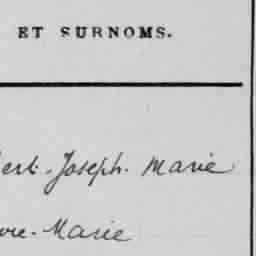 ET SURNOMS.
ert-Joseph-Marie
re-Marie